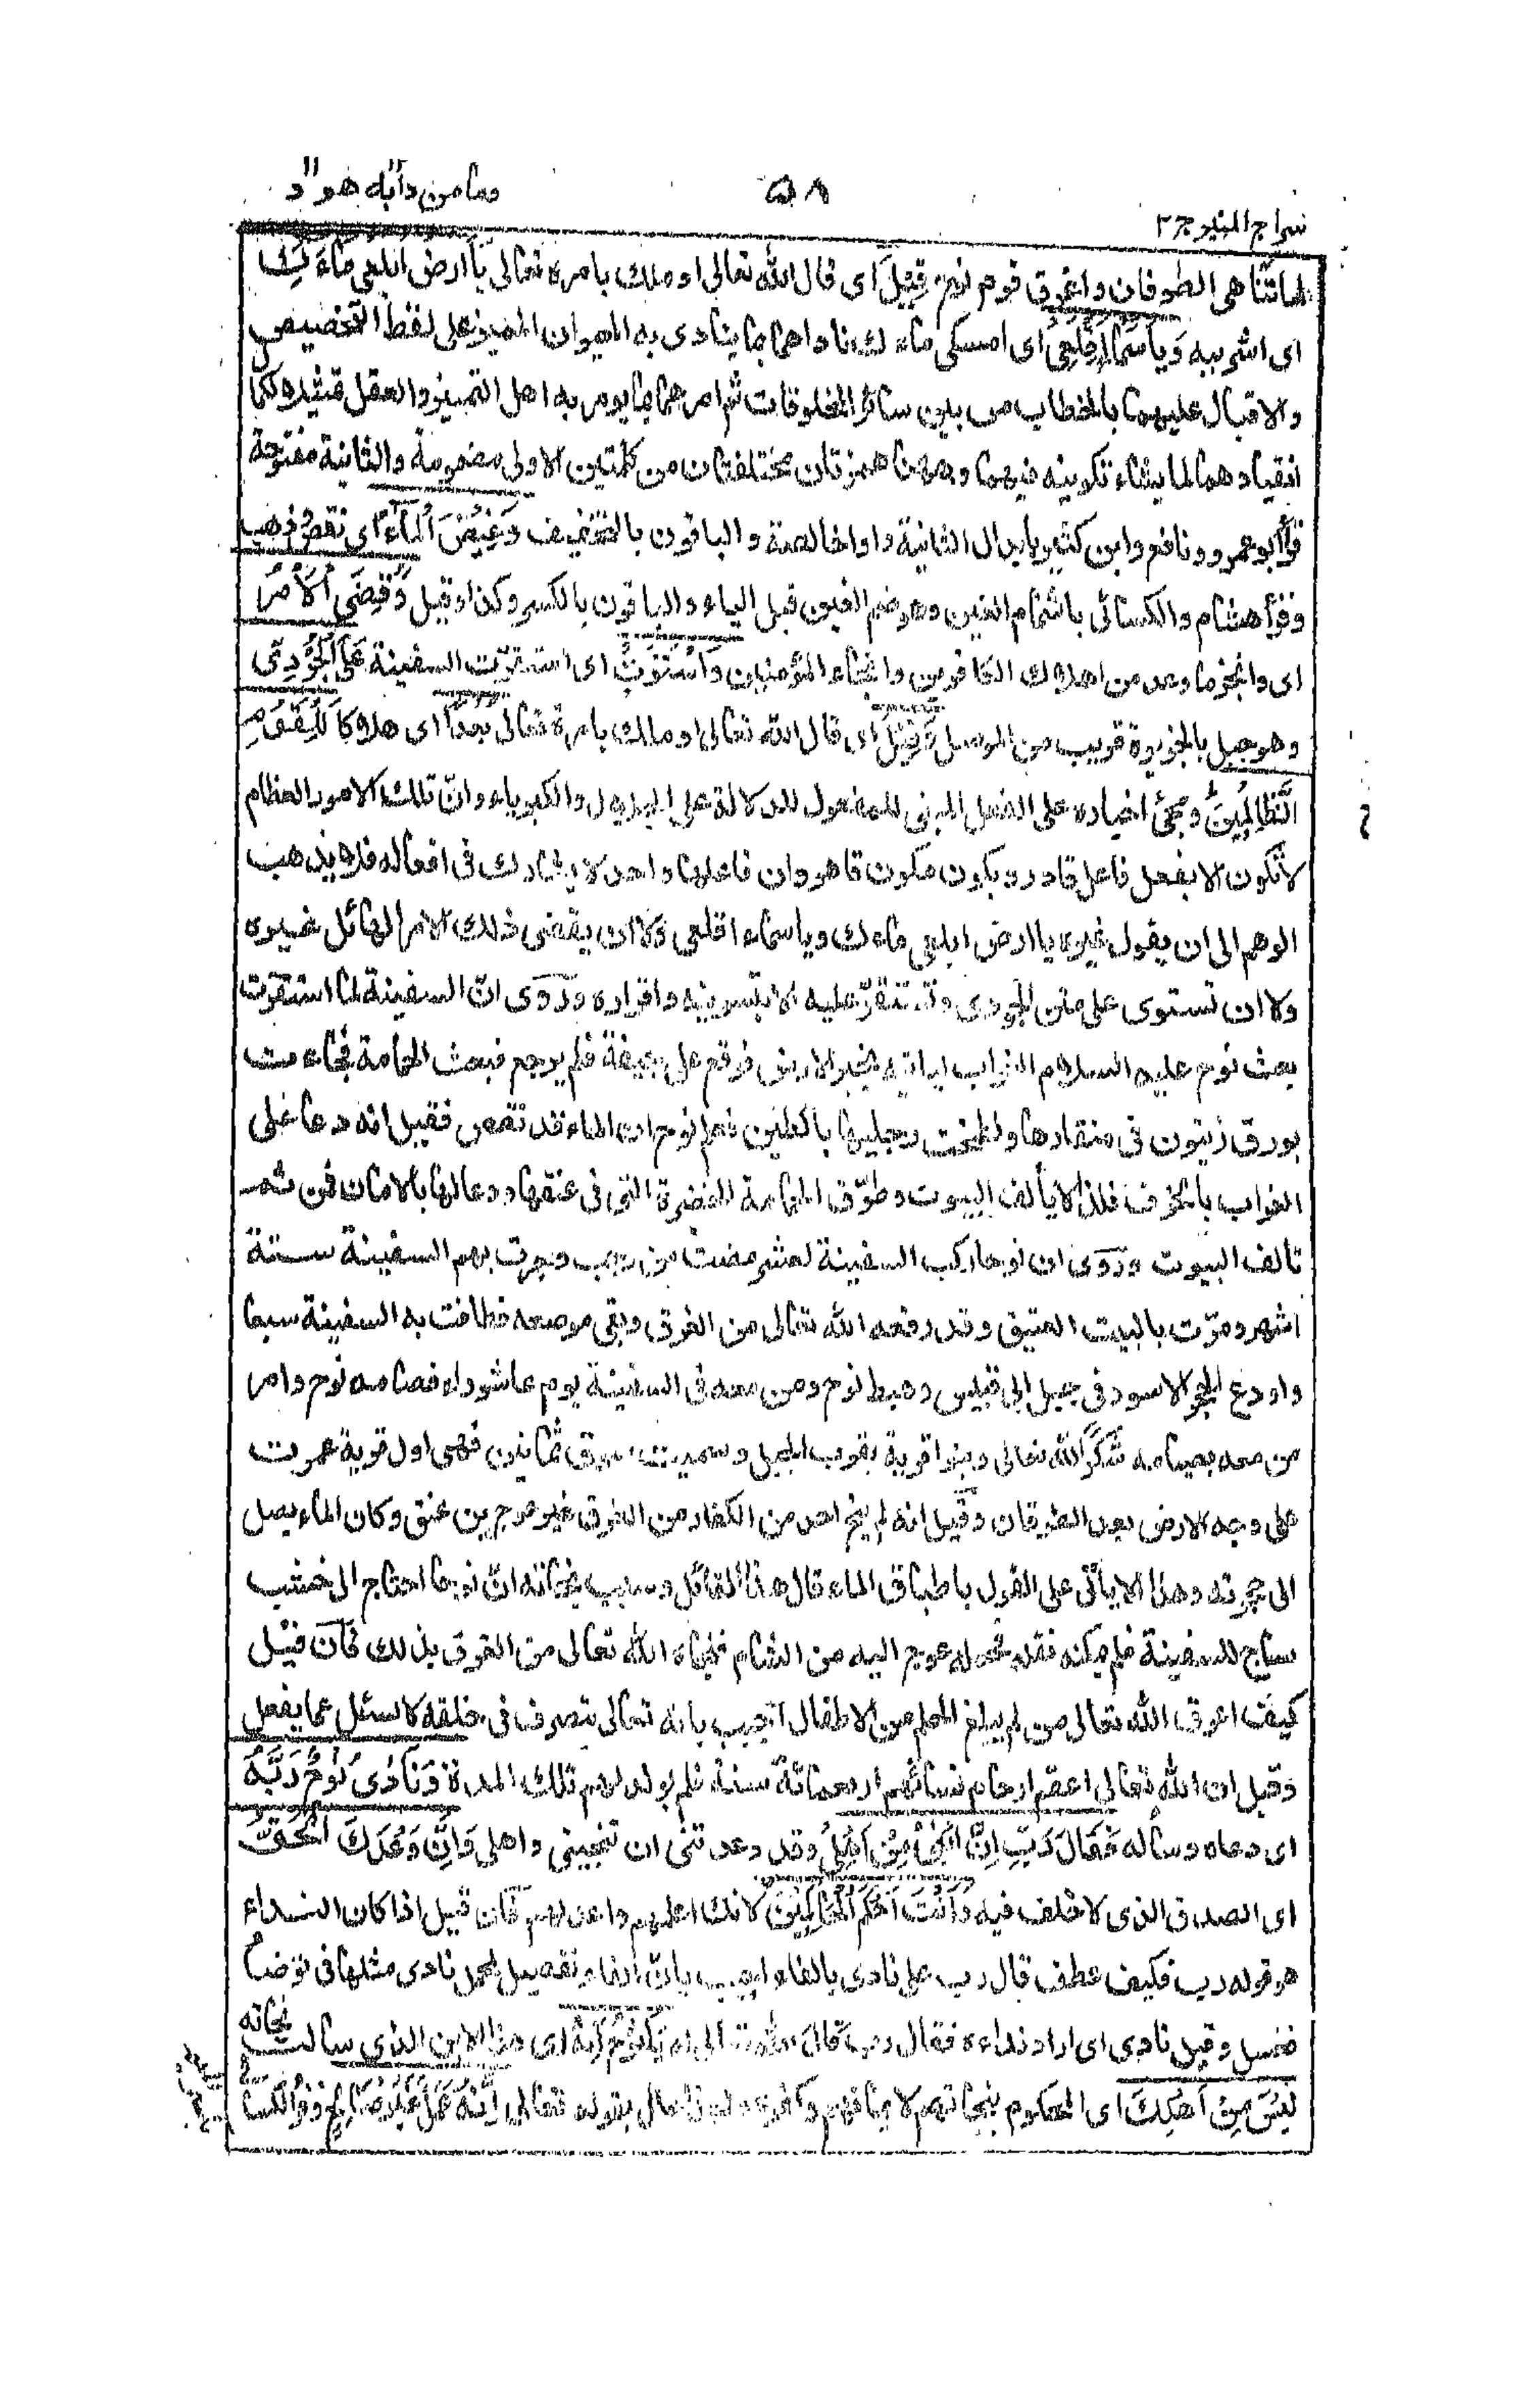 سراج المنير ج ٢
٥٨
وما من دآبة هود ١١
لما تناهى الطوفان واغرق قوم نوح وَقِيْلَ اى قال الله تعالى او ملك بامره تعالى يَا أَرْضُ ابْلَعِي مَاءَكِ
اى اشربيه وَيَا سَمَاءُ أَقْلِعِي اى امسكى ماءك ناداهما بما ينادى به الحيوان المميز على لفظ التخصيص
والاقبال عليهما بالخطاب من بين سائر المخلوقات ثم امرهما بما يومر به اهل التمييز والعقل تمثيلا لكمال
انقيادهما لما يشاء تكوينه فيهما وههنا همزتان مختلفتان من كلمتين الاولى مضمومة والثانية مفتوحة
قرأ ابو عمرو ونافع وابن كثير بابدال الثانية واوا خالصة والباقون بالتخفيف وَغِيْضَ الْمَاءُ اى نقص وذهب
وقرأ هشام والكسائى باشمام الغين وهو ضم الغين قبل الياء والباقون بالكسر وكذا وقيل وَقُضِيَ الْأَمْرُ
اى وانجز ما وعد من اهلاك الكافرين وانجاء المؤمنين وَاسْتَوَتْ اى استقرت السفينة عَلَى الْجُوْدِيِّ
وهو جبل بالجزيرة قريب من الموصل وَقِيْلَ اى قال الله تعالى او ملك بامره تعالى بُعْدًا اى هلاكا لِلْقَوْمِ
الظَّالِمِيْنَ ومجئ اخباره على الفعل المبنى للمفعول للدلالة على الجلال والكبرياء وانّ تلك الامور العظام
لا تكون الا بفعل فاعل قادر وبكون مكون قاهر وان فاعلها واحد لا يشارك فى افعاله فلا يذهب
الوهم الى ان يقول غيره يا ارض ابلعى ماءك ويا سماء اقلعى ولا ان يقضى ذلك الامر الهائل غيره
ولا ان تستوى على متن الجودى وتستقر عليه الا بتسويته واقراره وروى انّ السفينة لما استقرت
بعث نوح عليه السلام الغراب لياتيه بخبر الارض فوقع على جيفة فلم يرجع فبعث الحمامة فجاءت
بورق زيتون فى منقارها ولطخت رجليها بالطين فعلم نوح ان الماء قد نقص فقيل انه دعا على
الغراب بالخوف فلذا لا يألف البيوت وطوّق الحمامة الخضرة التى فى عنقها ودعا لها بالامان فمن ثم
تألف البيوت وروى ان نوحا ركب السفينة لعشر مضت من رجب وجرت بهم السفينة ستة
اشهر ومرّت بالبيت العتيق وقد رفعه الله تعالى من الغرق وبقى موضعه فطافت به السفينة سبعا
واودع الحجر الاسود فى جبل ابى قبيس وهبط نوح ومن معه فى السفينة يوم عاشوراء فصامه نوح وامر
من معه بصيامه شكرًا لله تعالى وبنوا قرية بقرب الجبل وسميت سوق ثمانين فهى اول قرية عمرت
على وجه الارض بعد الطوفان وقيل انه لم ينج احد من الكفار من الغرق غير عوج بن عنق وكان الماء يصل
الى حجزته وهذا لا يأتى على القول باطباق الماء قال هذا القائل وسبب نجاته انّ نوحا احتاج الى خشب
ساج للسفينة فلم يمكنه نقله فحمله عوج اليه من الشام فنجاه الله تعالى من الغرق بذلك فان قيل
كيف اغرق الله تعالى من لم يبلغ الحلم من الاطفال اجيب بانه تعالى يتصرف فى خلقه لا يسئل عما يفعل
وقيل ان الله تعالى اعقم ارحام نسائهم اربعمائة سنة فلم يولد لهم تلك المدة وَنَادَى نُوْحٌ رَبَّهُ
اى دعاه وسأله فَقَالَ رَبِّ إِنَّ ابْنِي مِنْ أَهْلِي وقد وعدتنى ان تنجينى واهلى وَإِنَّ وَعْدَكَ الْحَقُّ
اى الصدق الذى لا خلف فيه وَأَنْتَ أَحْكَمُ الْحَاكِمِيْنَ لانك اعلمهم واعدلهم فان قيل اذا كان النداء
هو قوله رب فكيف عطف قال رب على نادى بالفاء اجيب بانّ الفاء تفصيل لمجمل نادى مثلها فى توضأ
فغسل وقيل نادى اى اراد نداءه فقال رب قَالَ الله تعالى له يَا نُوْحُ إِنَّهُ اى هذا الابن الذى سالت نجاته
لَيْسَ مِنْ أَهْلِكَ اى المحكوم بنجاتهم لايمانهم وكفره بقوله تعالى إِنَّهُ عَمَلٌ غَيْرُ صَالِحٍ وقرأ الكسا